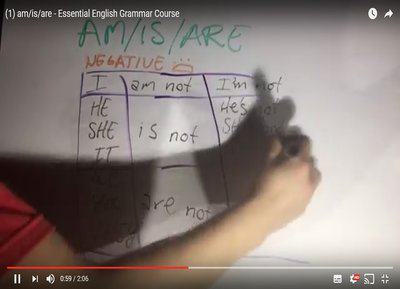 (1) am/is/are - Essential English Grammar Course
AM/IS/ARE
NEGATIVE
I am not I'm not
HE He's not
SHE is not
IT
are not
0:59 / 2:06